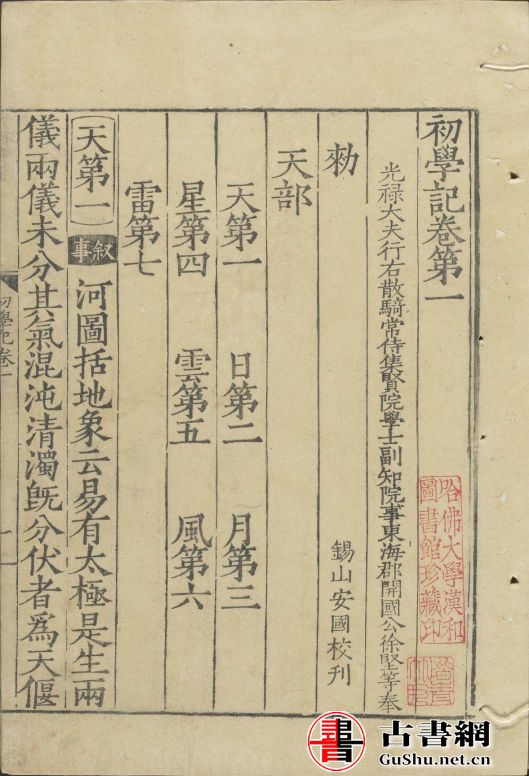 初學記卷第一
光祿大夫行右散騎常侍集賢院學士副知院事東海郡開國公徐堅等奉
勑
錫山安國校刊
天部
天第一 日第二 月第三
星第四 雲第五 風第六
雷第七
天第一 叙事 河圖括地象云易有太極是生兩
儀兩儀未分其氣混沌清濁旣分伏者爲天偃
初學記卷一
哈佛大學漢和
圖書館珍藏印
古書網
GuShu.net.cn